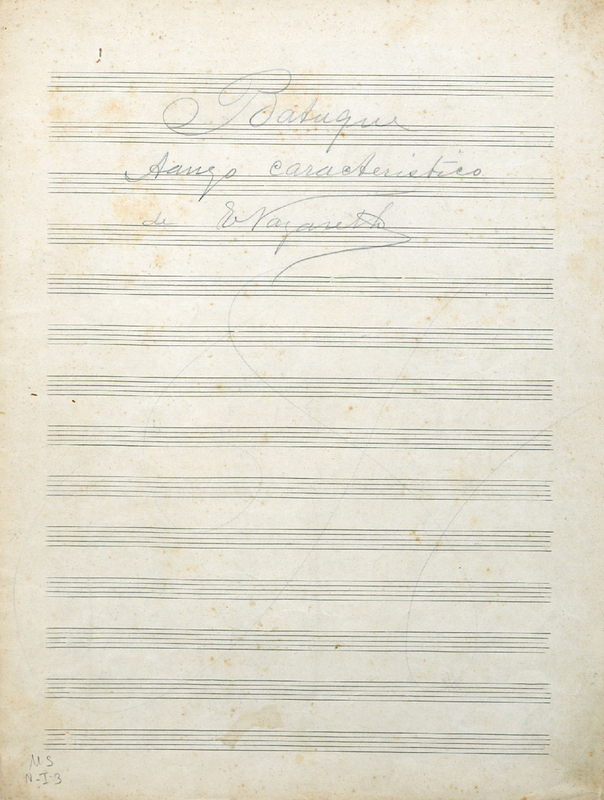 Batuque
tango caracteristico
de E Nazareth
MS
N-I-3